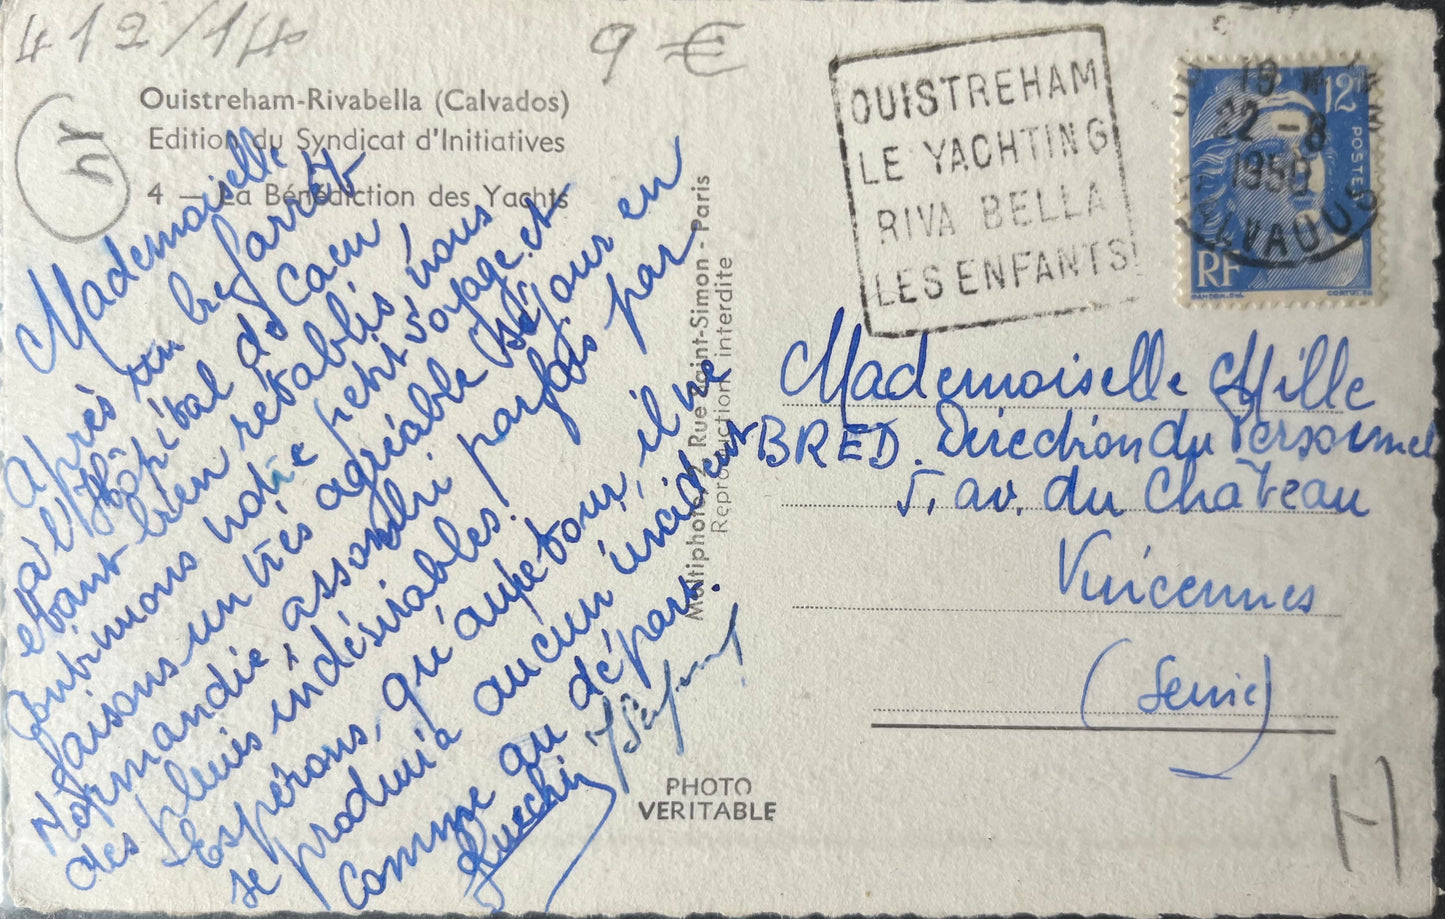 412/14
9 €
Ouistreham-Rivabella (Calvados)
Edition du Syndicat d'Initiatives
4 — La Bénédiction des Yachts
Mademoiselle
Après un bref arrêt
à l'hôpital de Caen,
étant bien rétablis, nous
continuons notre petit voyage et
faisons un très agréable séjour en
Normandie, assombri parfois par
des pluies indésirables!
Espérons, qu'au retour, il ne
se produira aucun incident
comme au départ.
Multiphoto, Rue Saint-Simon - Paris
Reproduction interdite
PHOTO
VERITABLE
OUISTREHAM
LE YACHTING
RIVA BELLA
LES ENFANTS!
19 H
22 - 8
1950
CALVADOS
12F
POSTES
RF
GANDON.Del.
CORTOT.SC
Mademoiselle Mille
BRED. Direction du Personnel
5, av. du Château
Vincennes
(Seine)
H